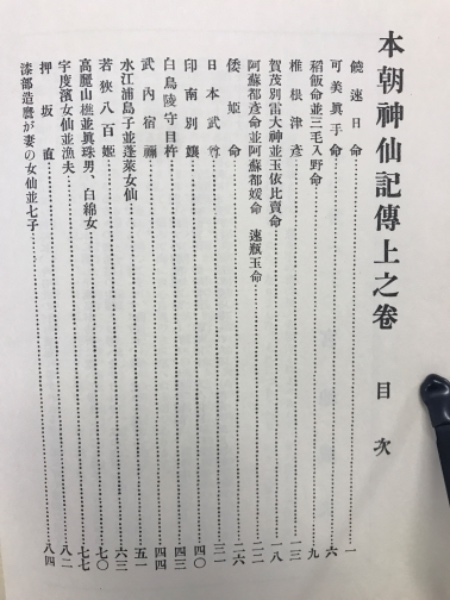 本朝神仙記傳上之卷 目次
饒速日命……一
可美眞手命……六
稻飯命並三毛入野命……九
椎根津彥……一三
賀茂別雷大神並玉依比賣命……一八
阿蘇都彥命並阿蘇都媛命 速瓶玉命……二二
倭姬命……二六
日本武尊……三一
印南別孃……四〇
白鳥陵守目杵……四三
武內宿禰……四四
水江浦島子並蓬萊女仙……五一
若狹八百姬……六三
高麗山樵並眞珠男、白綿女……七〇
宇度濱女仙並漁夫……七七
押坂直……八二
漆部造麿が妻の女仙並七子……八四